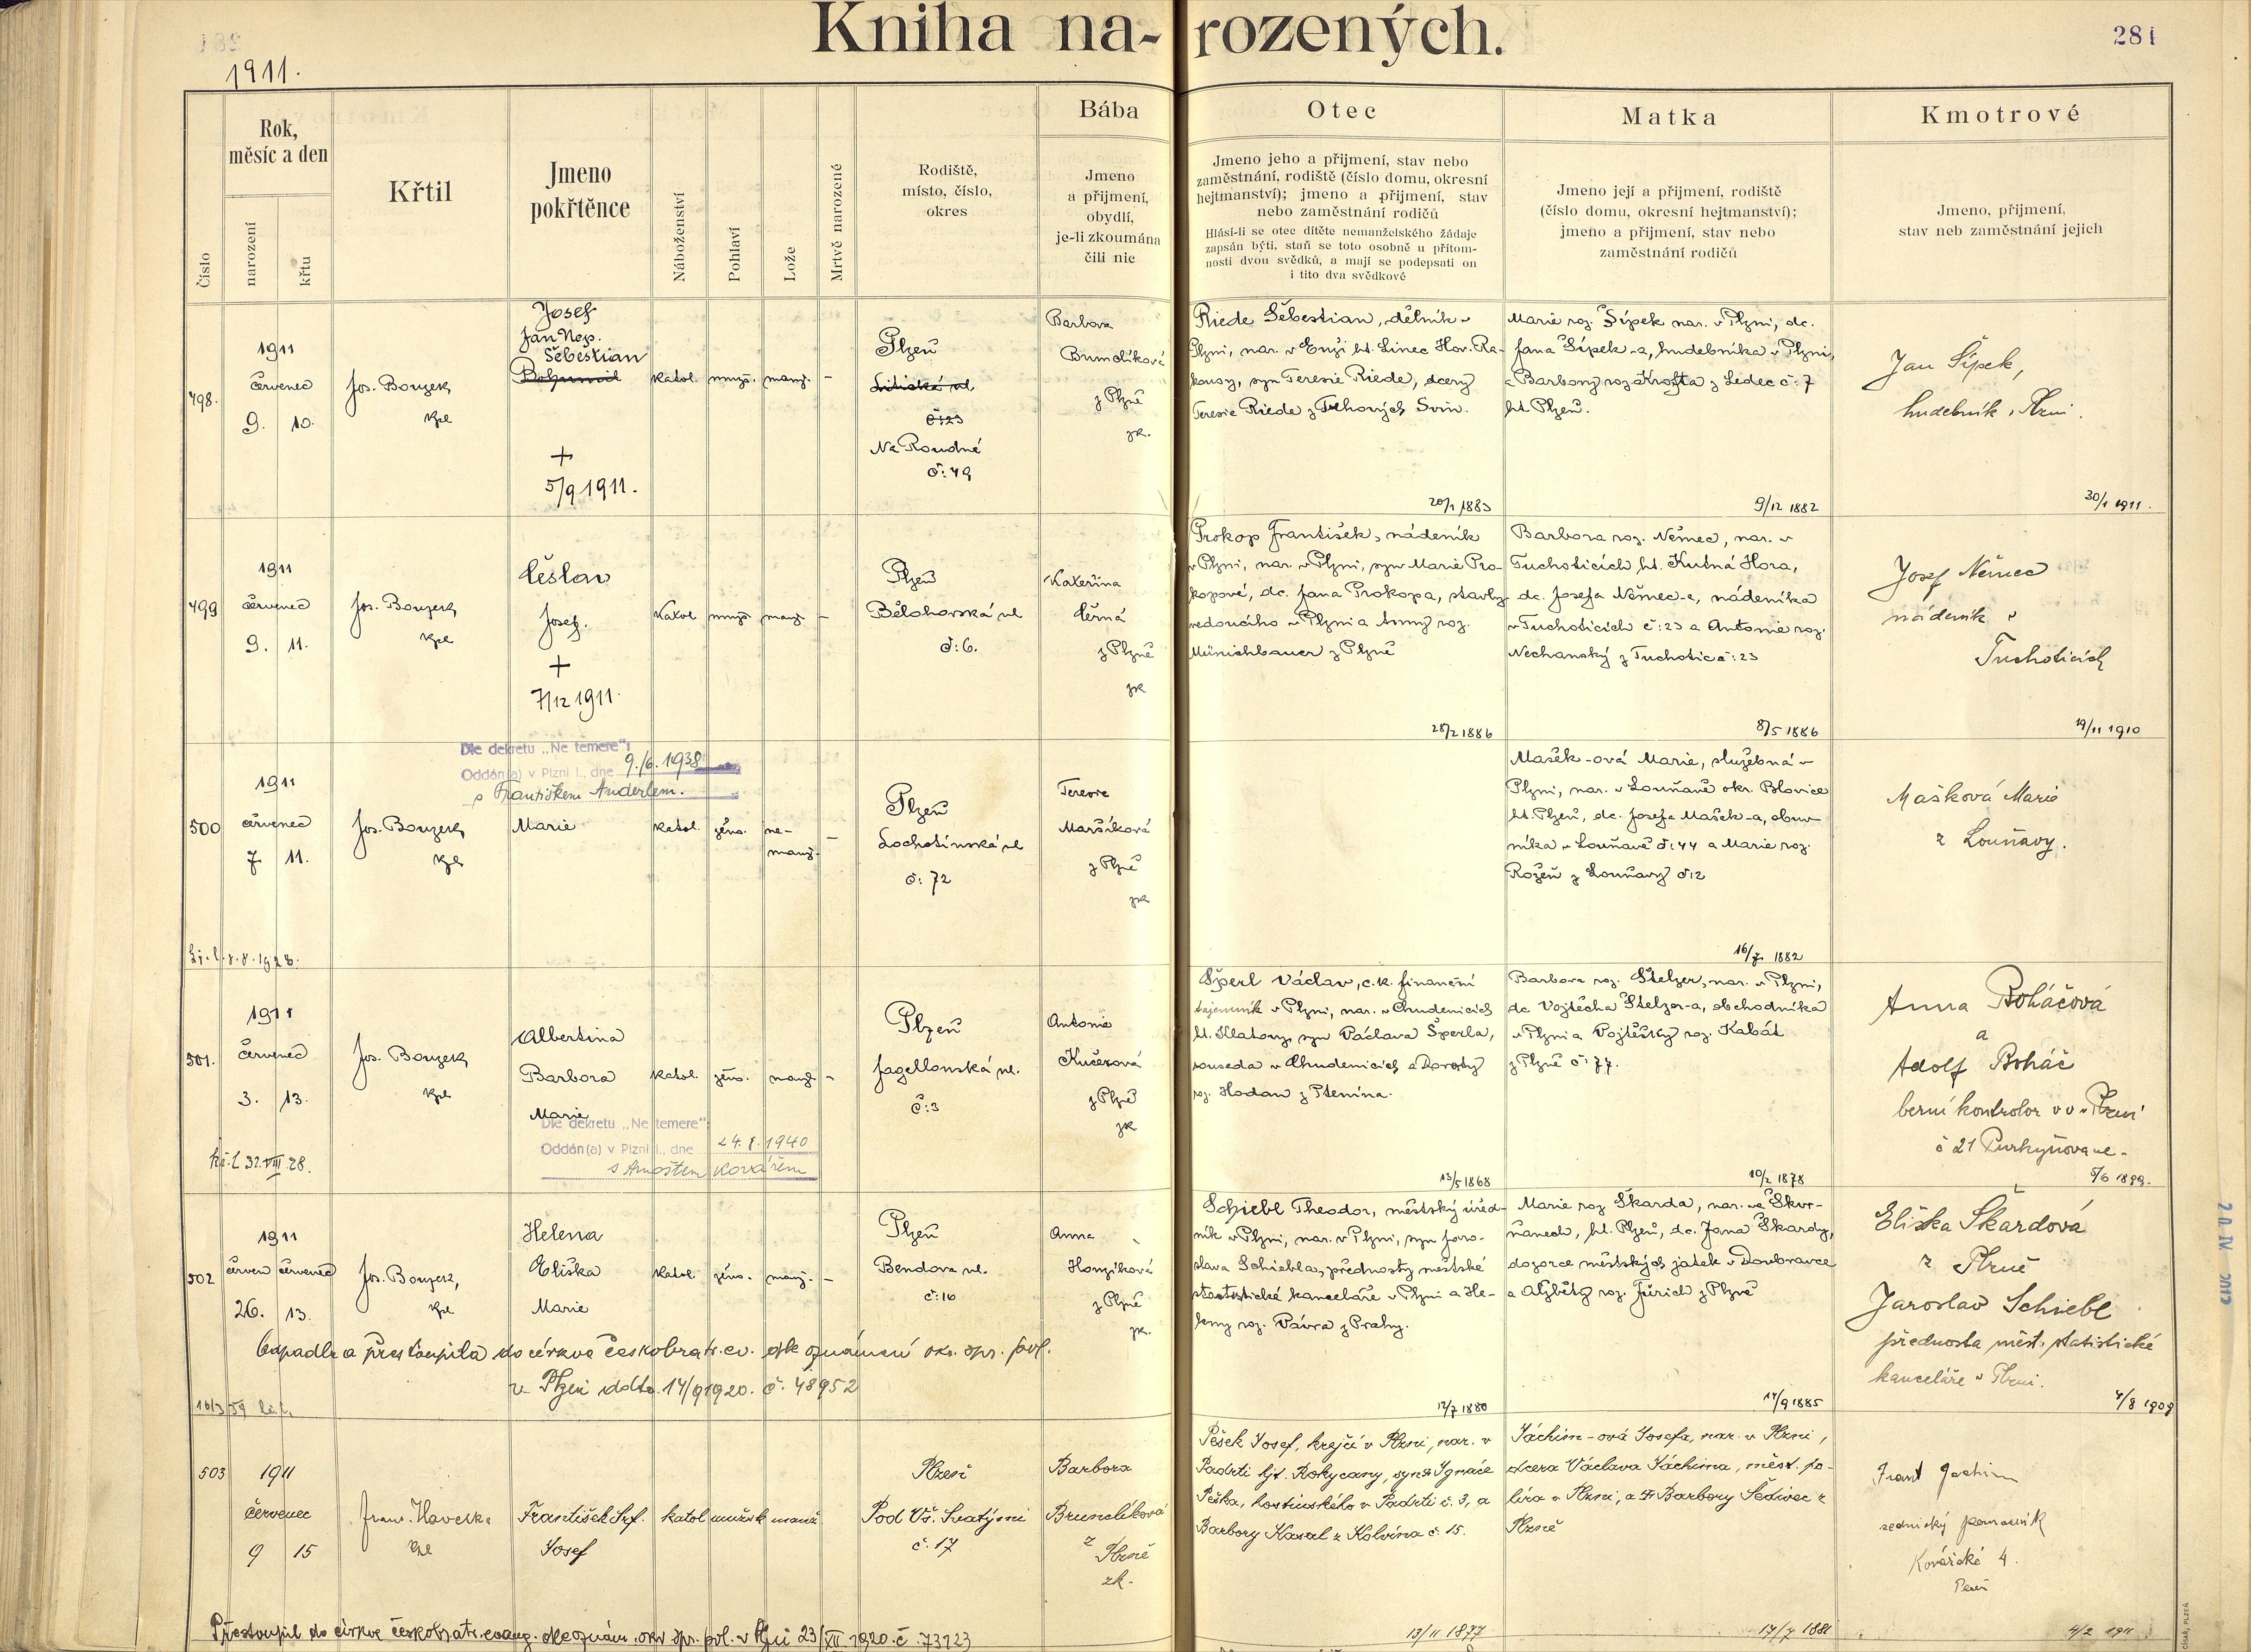 Kniha narozených.
281
1911.
Číslo
Rok,
měsíc a den
narození
křtu
Křtil
Jmeno
pokřtěnce
Náboženství
Pohlaví
Lože
Mrtvě narozené
Rodiště,
místo, číslo,
okres
Bába
Jmeno
a přijmení,
obydlí,
je-li zkoumána
čili nic
Otec
Jmeno jeho a přijmení, stav nebo
zaměstnání, rodiště (číslo domu, okresní
hejtmanství); jmeno a přijmení, stav
nebo zaměstnání rodičů
Hlásí-li se otec dítěte nemanželského žádaje
zapsán býti, staň se toto osobně u přítom-
nosti dvou svědků, a mají se podepsati on
i tito dva svědkové
Matka
Jmeno její a přijmení, rodiště
(číslo domu, okresní hejtmanství);
jmeno a přijmení, stav nebo
zaměstnání rodičů
Kmotrové
Jmeno, přijmení,
stav neb zaměstnání jejich
498.
1911
červenec
9. 10.
Jos. Bouzek,
kpl
Josef
Jan Nep.
Šebestian
Bohumil
+
5/9 1911.
katol. mužs. manž. –
Plzeň
č: 23
Na Roudné
č: 49
Barbora
z Plzně
zk.
Riede Šebestian, dělník v
Plzni, nar. v Enži ht. Linec Hor. Ra-
kousy, syn Teresie Riede, dcery
Teresie Riede z Trhových Svin.
20/1 1883
Marie roz. Šípek nar. v Plzni, dc.
Jana Šípek-a, hudebníka v Plzni,
a Barbory roz. Krofta z Ledec č: 7
ht. Plzeň.
9/12 1882
Jan Šípek,
hudebník v Plzni.
30/1 1911.
499
1911
červenec
9. 11.
Jos. Bouzek,
kpl
Česlav
Josef.
+
7/12 1911.
Katol mužs. manž. –
Plzeň
Bělohorská ul
č: 6.
Kateřina
Černá
z Plzně
zk
Prokop František, nádeník
v Plzni, nar. v Plzni, syn Marie Pro-
kopové, dc. Jana Prokopa, stavby-
vedoucího v Plzni a Anny roz.
Münichbauer z Plzně
28/2 1886
Barbora roz. Němec, nar. v
Tuchoticích ht. Kutná Hora,
dc. Josefa Němec-a, nádeníka
v Tuchoticích č: 23 a Antonie roz.
Nechanský z Tuchotic č: 23
8/5 1886
Josef Němec
nádeník v
Tuchoticích
19/11 1910
Dle dekretu „Ne temere":
Oddán(a) v Plzni I., dne 9./6. 1938
s Františkem Anderlem.
500
1911
červenec
7. 11.
Jos. Bouzek,
kpl
Marie
katol. žens. ne-
manž. –
Plzeň
Lochotínská ul
č: 72
Teresie
Maršíková
z Plzně
zk
Mašek-ová Marie, služebná v
Plzni, nar. v Louňavě okr. Blovice
ht. Plzeň, dc. Josefa Mašek-a, obuv-
níka v Louňavě č: 44 a Marie roz.
Rozeň z Louňavy č: 2
16/7 1882
Mašková Marie
z Louňavy.
501.
1911
červenec
3. 13.
Jos. Bouzek,
kpl
Albertina
Barbora
Marie
Dle dekretu „Ne temere":
Oddán(a) v Plzni I., dne 24. 8. 1940
s Arnoštem Kovářem
katol. žens. manž. –
Plzeň
Jagellonská ul.
č: 3
Antonie
Kučerová
z Plzně
zk
Šperl Václav, c.k. finanční
tajemník v Plzni, nar. v Chudenicích
ht. Klatovy, syn Václava Šperla,
souseda v Chudenicích a Doroty
roz. Hodan z Ptenína.
13/5 1868
Barbora roz. Štelzer, nar. v Plzni,
dc Vojtěcha Štelzer-a, obchodníka
v Plzni a Vojtěšky roz. Kabát
z Plzně č: 77.
10/2 1878
Anna Boháčová
a
Adolf Boháč
berní kontrolor v v v Plzni
č 21 Purkyňova ul.
5/6 1899.
502
1911
červen červenec
26. 13.
Jos. Bouzek,
kpl
Helena
Eliška
Marie
katol. žens. manž. –
Plzeň
Bendova ul.
č: 10
Anna
Honzíková
z Plzně
zk.
Schiebl Theodor, městský úřed-
ník v Plzni, nar. v Plzni, syn Jaro-
slava Schiebla, přednosty městské
statistické kanceláře v Plzni a He-
leny roz. Vávra z Prahy.
12/7 1880
Marie roz Škarda, nar. ve Skvr-
ňanech, ht. Plzeň, dc. Jana Škardy,
dozorce městských jatek v Doubravce
a Alžběty roz. Jürich z Plzně
14/9 1885
Eliška Škardová
z Plzně
Jaroslav Schiebl
přednosta měst. statistické
kanceláře v Plzni.
4/8 1909
Odpadla a přestoupila do církve českobratr. ev. dle oznámení okr. spr. pol.
v Plzni ddto 14/9 1920. č. 48952
503
1911
červenec
9 15
Frant. Havelka
kpl
František Srf.
Josef
katol mužsk manž.
Plzeň
Pod Vš. Svatými
č. 17
Barbora
Brunclíková
z
Plzně
zk.
Pešek Josef, krejčí v Plzni, nar. v
Padrti hjt. Rokycany, syn Ignáce
Peška, hostinského v Padrti č. 3, a
Barbory Kasal z Kolvína č. 15.
13/11 1877
Jáchim-ová Josefa, nar. v Plzni,
dcera Václava Jáchima, měst. po-
líra v Plzni, a Barbory Šedivec z
Plzně
17/7 1881
Frant Jachim
zednický pomocník
Kovářská 4.
4/2 1911
Přestoupil do církve českobratr. evang. dle oznám. okr. spr. pol. v Plzni 23/XII 1920. č. 73123
CÍSAŘ, PLZEŇ
20. IV. 2012